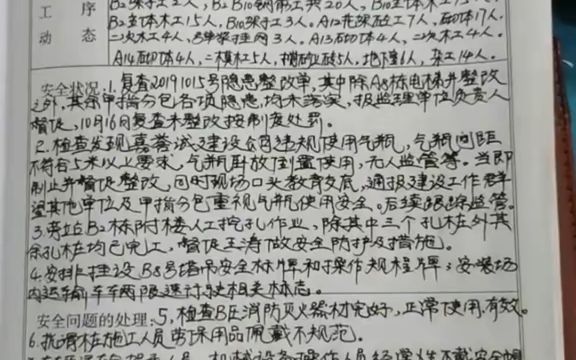 工 序
动 态
B2主体木工15人, B10架子工3人, A12花架砼工7人, 砌体17人,
二次木工4人, 吊篮挂网3人, A13砌体4人, 二次木工4人,
A14砌体4人, 二模木工5人, 砌砖5人, 地槽6人, 杂工14人.
安全状况: 1. 复查2019 1015号隐患整改单, 其中除A8栋电梯井整改
之外, 其余甲指分包各项隐患, 均未落实, 报监理单位负责人
督促, 10月16日复查未整改按制度处罚.
2. 检查发现嘉誉诚建设公司违规使用气瓶, 气瓶间距
不符合5米以上要求, 气瓶卧放倒置使用, 无人监管等. 当即
制止并督促整改, 同时现场口头教育交底, 通报建设工作群
望其他单位及甲指分包重视气瓶使用安全. 后续跟踪监管.
3. 旁站B2栋附楼人工挖孔作业, 除其中三个孔桩外其
余孔桩均已完工, 督促王涛做安全防护及措施.
4. 安排挂设B8号塔吊安全标牌和操作规程牌; 安装场
内运输车车辆限速行驶相关标志.
安全问题的处理: 5, 检查B区消防灭火器材完好, 正常使用, 有效.
6. 抗滑桩施工人员劳保用品佩戴不规范.